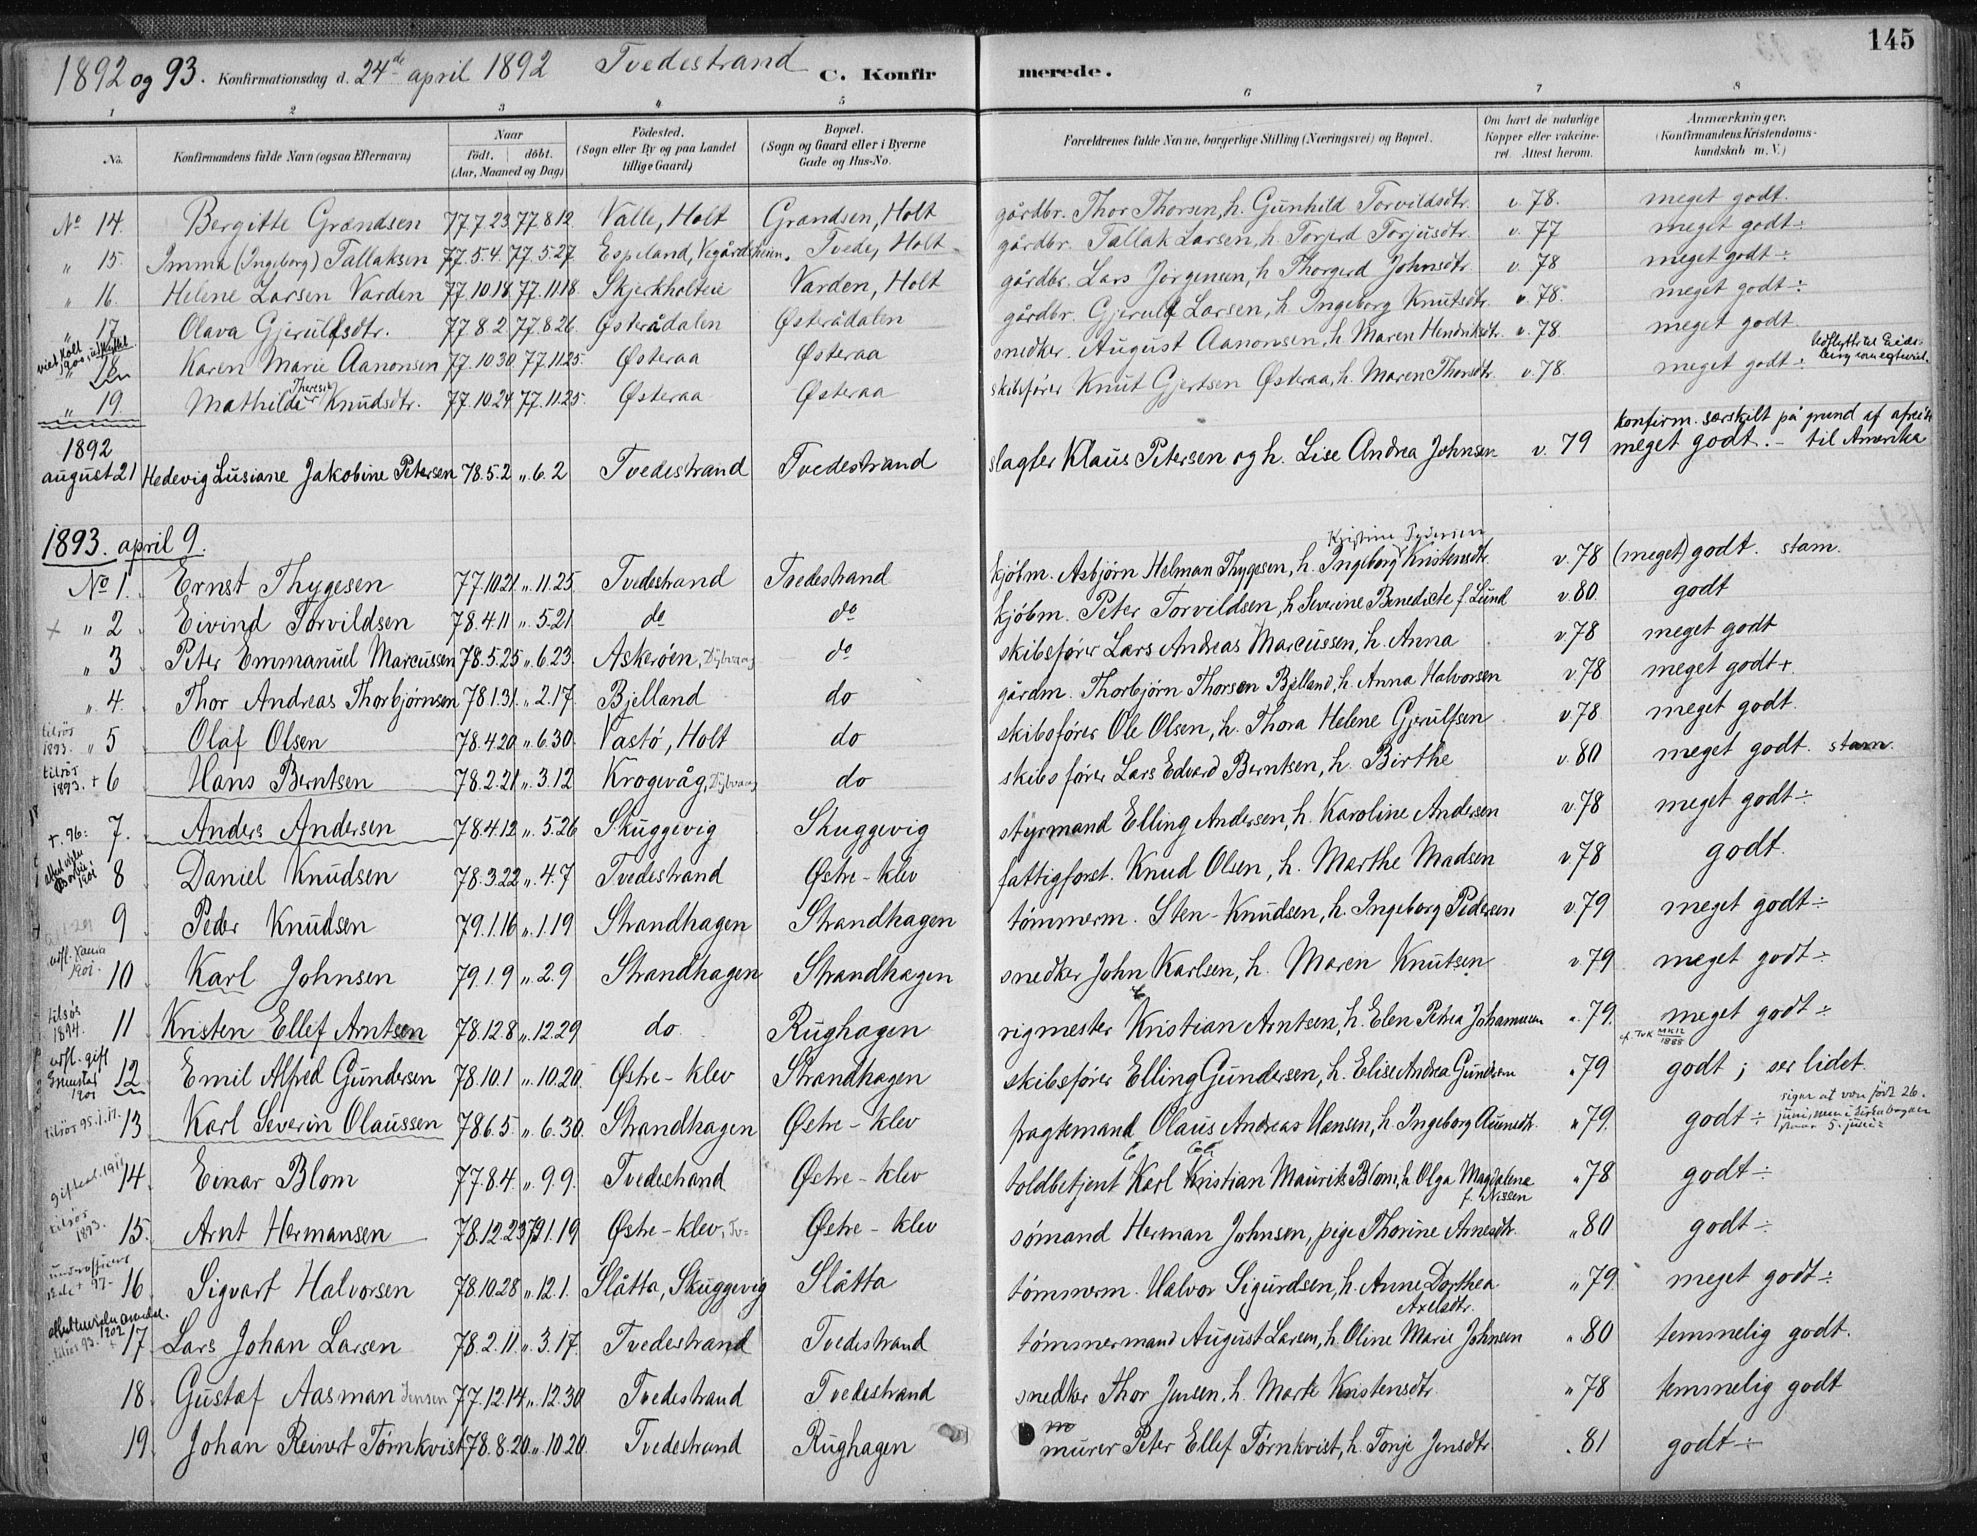 145
1892 og 93. Konfirmationsdag d. 24de april 1892 Tvedestrand C. Konfir merede.
1 2 3 4 5 6 7 8
No. Konfirmandens fulde Navn (ogsaa Efternavn) Naar født. døbt. (Aar, Maaned og Dag) Fødested. (Sogn eller By og paa Landet tillige Gaard) Bopæl. (Sogn og Gaard eller i Byerne Gade og Hus-No. Forældrenes fulde Navne, borgerlige Stilling (Næringsvei) og Bopæl. Om havt de naturlige Kopper eller vakcineret. Attest herom. Anmærkninger. (Konfirmandens Kristendomskundskab m. V.)
No 14. Bergitte Grandsen 77.7.23 77.8.12. Valle, Holt Grandsen, Holt gårdbr. Thor Thorsen, h. Gunhild Torvildsdtr. v. 78. meget godt.
" 15. Imma (Ingeborg) Tallaksen 77.5.4. 77.5.27 Espeland, Vegårdsheien. Tvede, Holt gårdbr. Tallak Larsen, h. Torjerd Torjusdtr. v. 77 meget godt ÷
" 16. Helene Larsen Varden 77.10.18 77.11.18 Skjerkholteie Varden, Holt gårdbr. Lars Jørgensen, h. Thorgerd Johnsdtr. v. 78 meget godt ÷
" 17 Olava Gjerulfsdtr. 77.8.2. 77.8.26. Østerådalen Østerådalen gårdbr. Gjerulf Larsen, h. Ingeborg Knutsdtr. v. 78. meget godt ÷
" 18 Karen Marie Aanonsen 77.10.30 77.11.25. Østeraa Østeraa snedker. August Aanonsen, h. Maren Hendriksdtr. v. 78 meget godt
" 19 Mathilde Theresie Knudsdtr. 77.10.24 77.11.25. Østeraa Østeraa skibsfører Knut Gjertsen Østeraa, h. Maren Thorsdtr. v. 78 meget godt ÷
1892 august 21 Hedevig Lusiane Jakobine Petersen 78.5.2 ". 6. 2 Tvedestrand Tvedestrand slagter Klaus Petersen og h. Lise Andrea Johnsen v. 79 meget godt. - konfirm. særskilt på grund af afreise til Amerika
1893. april 9.
No 1. Ernst Thygesen 77.10.21 ". 11.25. Tvedestrand Tvedestrand kjøbm. Asbjørn Helman Thygesen, h. Ingeborg Kristensdtr. v. 78 (meget) godt. stam.
+ " 2 Eivind Torvildsen 78.4.11 ". 5.21 do do kjøbm. Peter Torvildsen, h Severine Benedicte f. Lund v. 80 godt
" 3 Peter Emmanuel Marcussen 78.5.25 ". 6.23. Askerøen, Dybvaag do skibsfører Lars Andreas Marcussen, h. Anna v. 78 meget godt
" 4. Thor Andreas Thorbjørnsen 78.1.31. ". 2.17. Bjelland do gårdm. Thorbjørn Thorsen Bjelland, h. Anna Halvorsen v. 78 meget godt +
tilsjøs 1893. " 5 Olaf Olsen 78.4.20 ". 6.30. Vastø, Holt do skibsfører Ole Olsen, h. Thora Helene Gjerulfsen v. 78 meget godt.
tilsjøs 1893. + 6 Hans Berntsen 78.2.21 ". 3.12 Krogevåg, Dybvaag do skibsfører Lars Edvard Berntsen, h. Birthe v. 80 meget godt. stam.
+. 96: 7. Anders Andersen 78.4.12 ". 5.26 Skuggevig Skuggevig styrmand Elling Andersen, h. Karoline Andersen v. 78 meget godt ÷
1901 8 Daniel Knudsen 78.3.22 ". 4.7 Tvedestrand Østre-klev fattigforst. Knud Olsen, h. Marthe Madsen v. 78 godt.
9 Peder Knudsen 79.1.16 ". 1.19 Strandhagen Strandhagen tømmerm. Sten Knudsen, h. Ingeborg Pedersen v. 79 meget godt ÷
1901. 10 Karl Johnsen 79.1.9 ". 2.9 Strandhagen Strandhagen snedker John Karlsen, h. Maren Knutsen v. 79 meget godt ÷
tilsjøs 1894. 11 Kristen Ellef Arntsen 78.12.8 ". 12.29 do Rughagen rigmester Kristian Arntsen, h. Elen Petrea Johannesen ". 79. meget godt ÷
1901 12 Emil Alfred Gundersen 78.10.1 ". 10.20. Østre-klev Strandhagen skibsfører Elling Gundersen, h. Elise Andrea Gundersen " 79 godt; ser lidet.
13 Karl Severin Olaussen 78.6.5. ". 6.30. Strandhagen Østre-klev fragtemand Olaus Andreas Hansen, h. Ingeborg Aunsdtr. " 79. godt ÷
14. Einar Blom 77.8.4. ". 9.9. Tvedestrand Østre-klev toldbetjent Karl Kristian Maurits Blom, h. Olga Magdalene f. Nissen " 78 godt ÷
tilsjøs 1893. 15. Arnt Hermansen 78.12.23 79.1.19 Østre-klev, Tv= Østre-klev sømand Herman Johnsen, pige Thorine Arnesdtr. " 80 godt ÷
16 Sigvart Halvorsen 78.10.28 ". 12.1. Slåtta, Skuggevig Slåtta tømmerm. Halvor Sigurdsen, h. Anne Dorthea Axelsdtr. " 79. meget godt ÷
1902 17 Lars Johan Larsen 78.2.11. ". 3.17. Tvedestrand Tvedestrand tømmermand August Larsen, h. Oline Marie Johnsen " 80 temmelig godt.
18. Gustaf Aasman Jensen 77.12.14 ". 12.30 Tvedestrand Tvedestrand snedker Thor Jensen, h. Marte Kristensdtr. " 78 temmelig godt
19. Johan Reinert Tørnkvist 78.8.20 ". 10.20. Tvedestrand Rughagen murer Peter Ellef Tørnkvist, h. Tonje Jensdtr. " 81 godt ÷